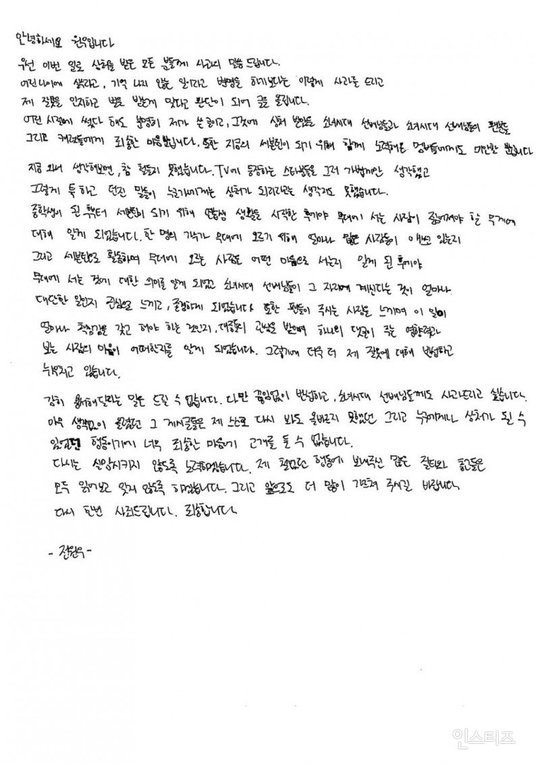 안녕하세요 원우입니다
우선 이번 일로 상처를 받은 모든 분들께 사과의 말씀 드립니다.
어린나이에 생각없고, 기억 나지 않는 일이라고 변명을 하기보다는 이렇게 사과를 드리고
제 잘못을 인지하고 벌도 받는게 맞다고 판단이 되어 글을 올립니다.
어린 시절에 썼다 해도 분명히 제가 쓴 글이고, 그것에 상처 받았을 소녀시대 선배님들과 소녀시대 선배님들의 팬분들
그리고 캐럿들에게 죄송한 마음뿐입니다. 또한 지금의 세븐틴이 되기 위해 함께 노력해온 멤버들에게도 미안할 뿐입니다
지금 와서 생각해보면, 참 철들지 못했습니다. TV에 등장하는 스타분들을 그저 가볍게만 생각했고
그렇게 툭 하고 던진 말들이 누군가에게는 상처가 되리라고는 생각지도 못했습니다.
중학생이 된 후부터 세븐틴이 되기 위해 연습생 생활을 시작한 후에야 무대에 서는 사람이 짊어져야 할 무게에
대해 알게 되었습니다. 한 명의 가수가 무대에 오르기 위해 얼마나 많은 사람들이 애쓰고 있는지
그리고 세븐틴으로 활동하며 무대에 오르는 사람은 어떤 마음으로 서는지 알게 된 후에야
무대에 서는 것에 대한 의미를 알게 되었고 소녀시대 선배님들이 그 자리에 계신다는 것이 얼마나
대단한 일인지 진심으로 느끼고, 존경하게 되었습니다 또한 팬들이 주시는 사랑을 느끼며 이 일이
얼마나 책임감을 갖고 해야 하는 것인지, 대중들의 관심을 받으며 하나의 댓글이 주는 영향력과
보는 사람의 마음이 어떠한지를 알게 되었습니다. 그렇기에 더욱 더 제 잘못에 대해 반성하고
뉘우치고 있습니다.
감히 용서해달라는 말은 드릴 수 없습니다. 다만 끊임없이 반성하고, 소녀시대 선배님들께도 사과드리고 싶습니다.
아무 생각없이 올렸던 그 게시글들은 제 스스로 다시 봐도 올바르지 못했던 그리고 누군에게나 상처가 될 수
있었던 행동이기에 너무 죄송한 마음에 고개를 들 수 없습니다.
다시는 실망시키지 않도록 노력하겠습니다. 제 철없던 행동에 보내주신 많은 질타와 충고들은
모두 읽어보고 잊지 않도록 하겠습니다. 그리고 앞으로도 더 많이 가르쳐 주시길 바랍니다.
다시 한번 사죄드립니다. 죄송합니다.
- 전원우 -
인스티즈